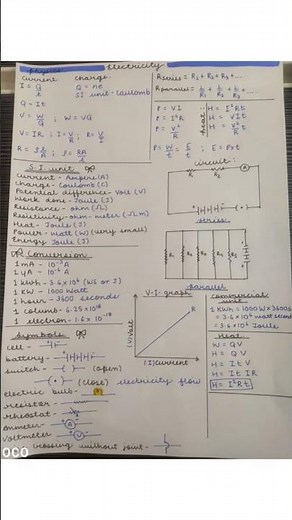 Physics
Electricity
current
charge
I = Q/t
Q = ne
SI unit - Coulomb
Q = It
V = W/Q ; W = VQ
V = IR ; I = V/R ; R = V/I
R = ρl/A ; ρ = RA/l
Rseries = R1 + R2 + R3 + ...
Rparallel = 1/R1 + 1/R2 + 1/R3 + ...
P = VI
P = I²R
P = V²/R
heat
H = I²Rt
H = VIt
H = V²t/R
P = W/t = E/t ; E = Pxt
S.I. unit
Current - Ampere (A)
Charge - Coulomb (C)
Potential difference - Volt (V)
Work done - Joule (J)
Resistance - ohm (Ω)
Resistivity - ohm-meter (Ωm)
Heat - Joule (J)
Power - Watt (W) (very small)
Energy - Joule (J)
circuit:
R1 R2 R3
A
series
R1 R2 R3 R4
parallel
Conversion
1 mA = 10⁻³ A
1 μA = 10⁻⁶ A
1 kWh = 3.6 x 10⁶ (WS or J)
1 KW = 1000 Watt
1 hour = 3600 seconds
1 electron = 1.6 x 10⁻¹⁹
V-I graph
(V)Volt
(I)current
R
commercial unit
1 KWh = 1000W x 3600s
= 3.6 x 10⁶ watt second
= 3.6 x 10⁶ Joule
Heat
W = QV
H = QV
H = ItV
H = It IR
H = I²Rt
Symbols
cell -
battery -
switch - ( ) (open)
(•) (close) electricity flow
electric bulb -
resistor -
rheostat -
ammeter - A
voltmeter - V
crossing without joint -
OCO